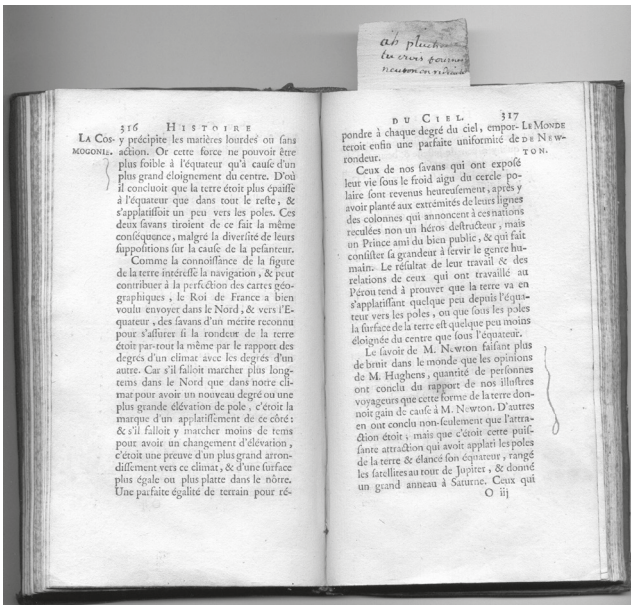 ah pluche
tu crois
316 HISTOIRE
LA COS-
MOGONIE.
y précipite les matières lourdes ou sans
action. Or cette force ne pouvoir être
plus foible à l'équateur qu'à cause d'un
plus grand éloignement du centre. D'où
il concluoit que la terre étoit plus épaisse
à l'équateur que dans tout le reste, &
s'applatissoit un peu vers les poles. Ces
deux savans tiroient de ce fait la même
conséquence, malgré la diversité de leurs
suppositions sur la cause de la pesanteur.
Comme la connoissance de la figure
de la terre intéresse la navigation, & peut
contribuer à la perfection des cartes géo-
graphiques, le Roi de France a bien
voulu envoyer dans le Nord, & vers l'E-
quateur, des savans d'un mérite reconnu
pour s'assurer si la rondeur de la terre
étoit par-tout la même par le rapport des
degrés d'un climat avec les degrés d'un
autre. Car s'il falloit marcher plus long-
tems dans le Nord que dans notre cli-
mat pour avoir un nouveau degré ou une
plus grande élévation de pole, c'étoit la
marque d'un applatissement de ce côté :
& s'il falloit y marcher moins de tems
pour avoir un changement d'élévation,
c'étoit une preuve d'un plus grand arron-
dissement vers ce climat, & d'une surface
plus égale ou plus platte dans le nôtre.
Une parfaite égalité de terrain pour ré-
DU CIEL. 317
LE MONDE
DE NEW-
TON.
pondre à chaque degré du ciel, empor-
teroit enfin une parfaite uniformité de
rondeur.
Ceux de nos savans qui ont exposé
leur vie sous le froid aigu du cercle po-
laire sont revenus heureusement, après y
avoir planté aux extrémités de leurs lignes
des colonnes qui annoncent à ces nations
reculées non un héros destructeur, mais
un Prince ami du bien public, & qui fait
consister sa grandeur à servir le genre hu-
main. Le résultat de leur travail & des
relations de ceux qui ont travaillé au
Pérou tend à prouver que la terre va en
s'applatissant quelque peu depuis l'équa-
teur vers les poles, ou que sous les poles
la surface de la terre est quelque peu moins
éloignée du centre que sous l'équateur.
Le savoir de M. Newton faisant plus
de bruit dans le monde que les opinions
de M. Hughens, quantité de personnes
ont conclu du rapport de nos illustres
voyageurs que cette forme de la terre don-
noit gain de cause à M. Newton. D'autres
en ont conclu non-seulement que l'attra-
ction étoit, mais que c'étoit cette puis-
sante attraction qui avoit applati les poles
de la terre & élancé son équateur, rangé
les satellites autour de Jupiter, & donné
un grand anneau à Saturne. Ceux qui
O iij